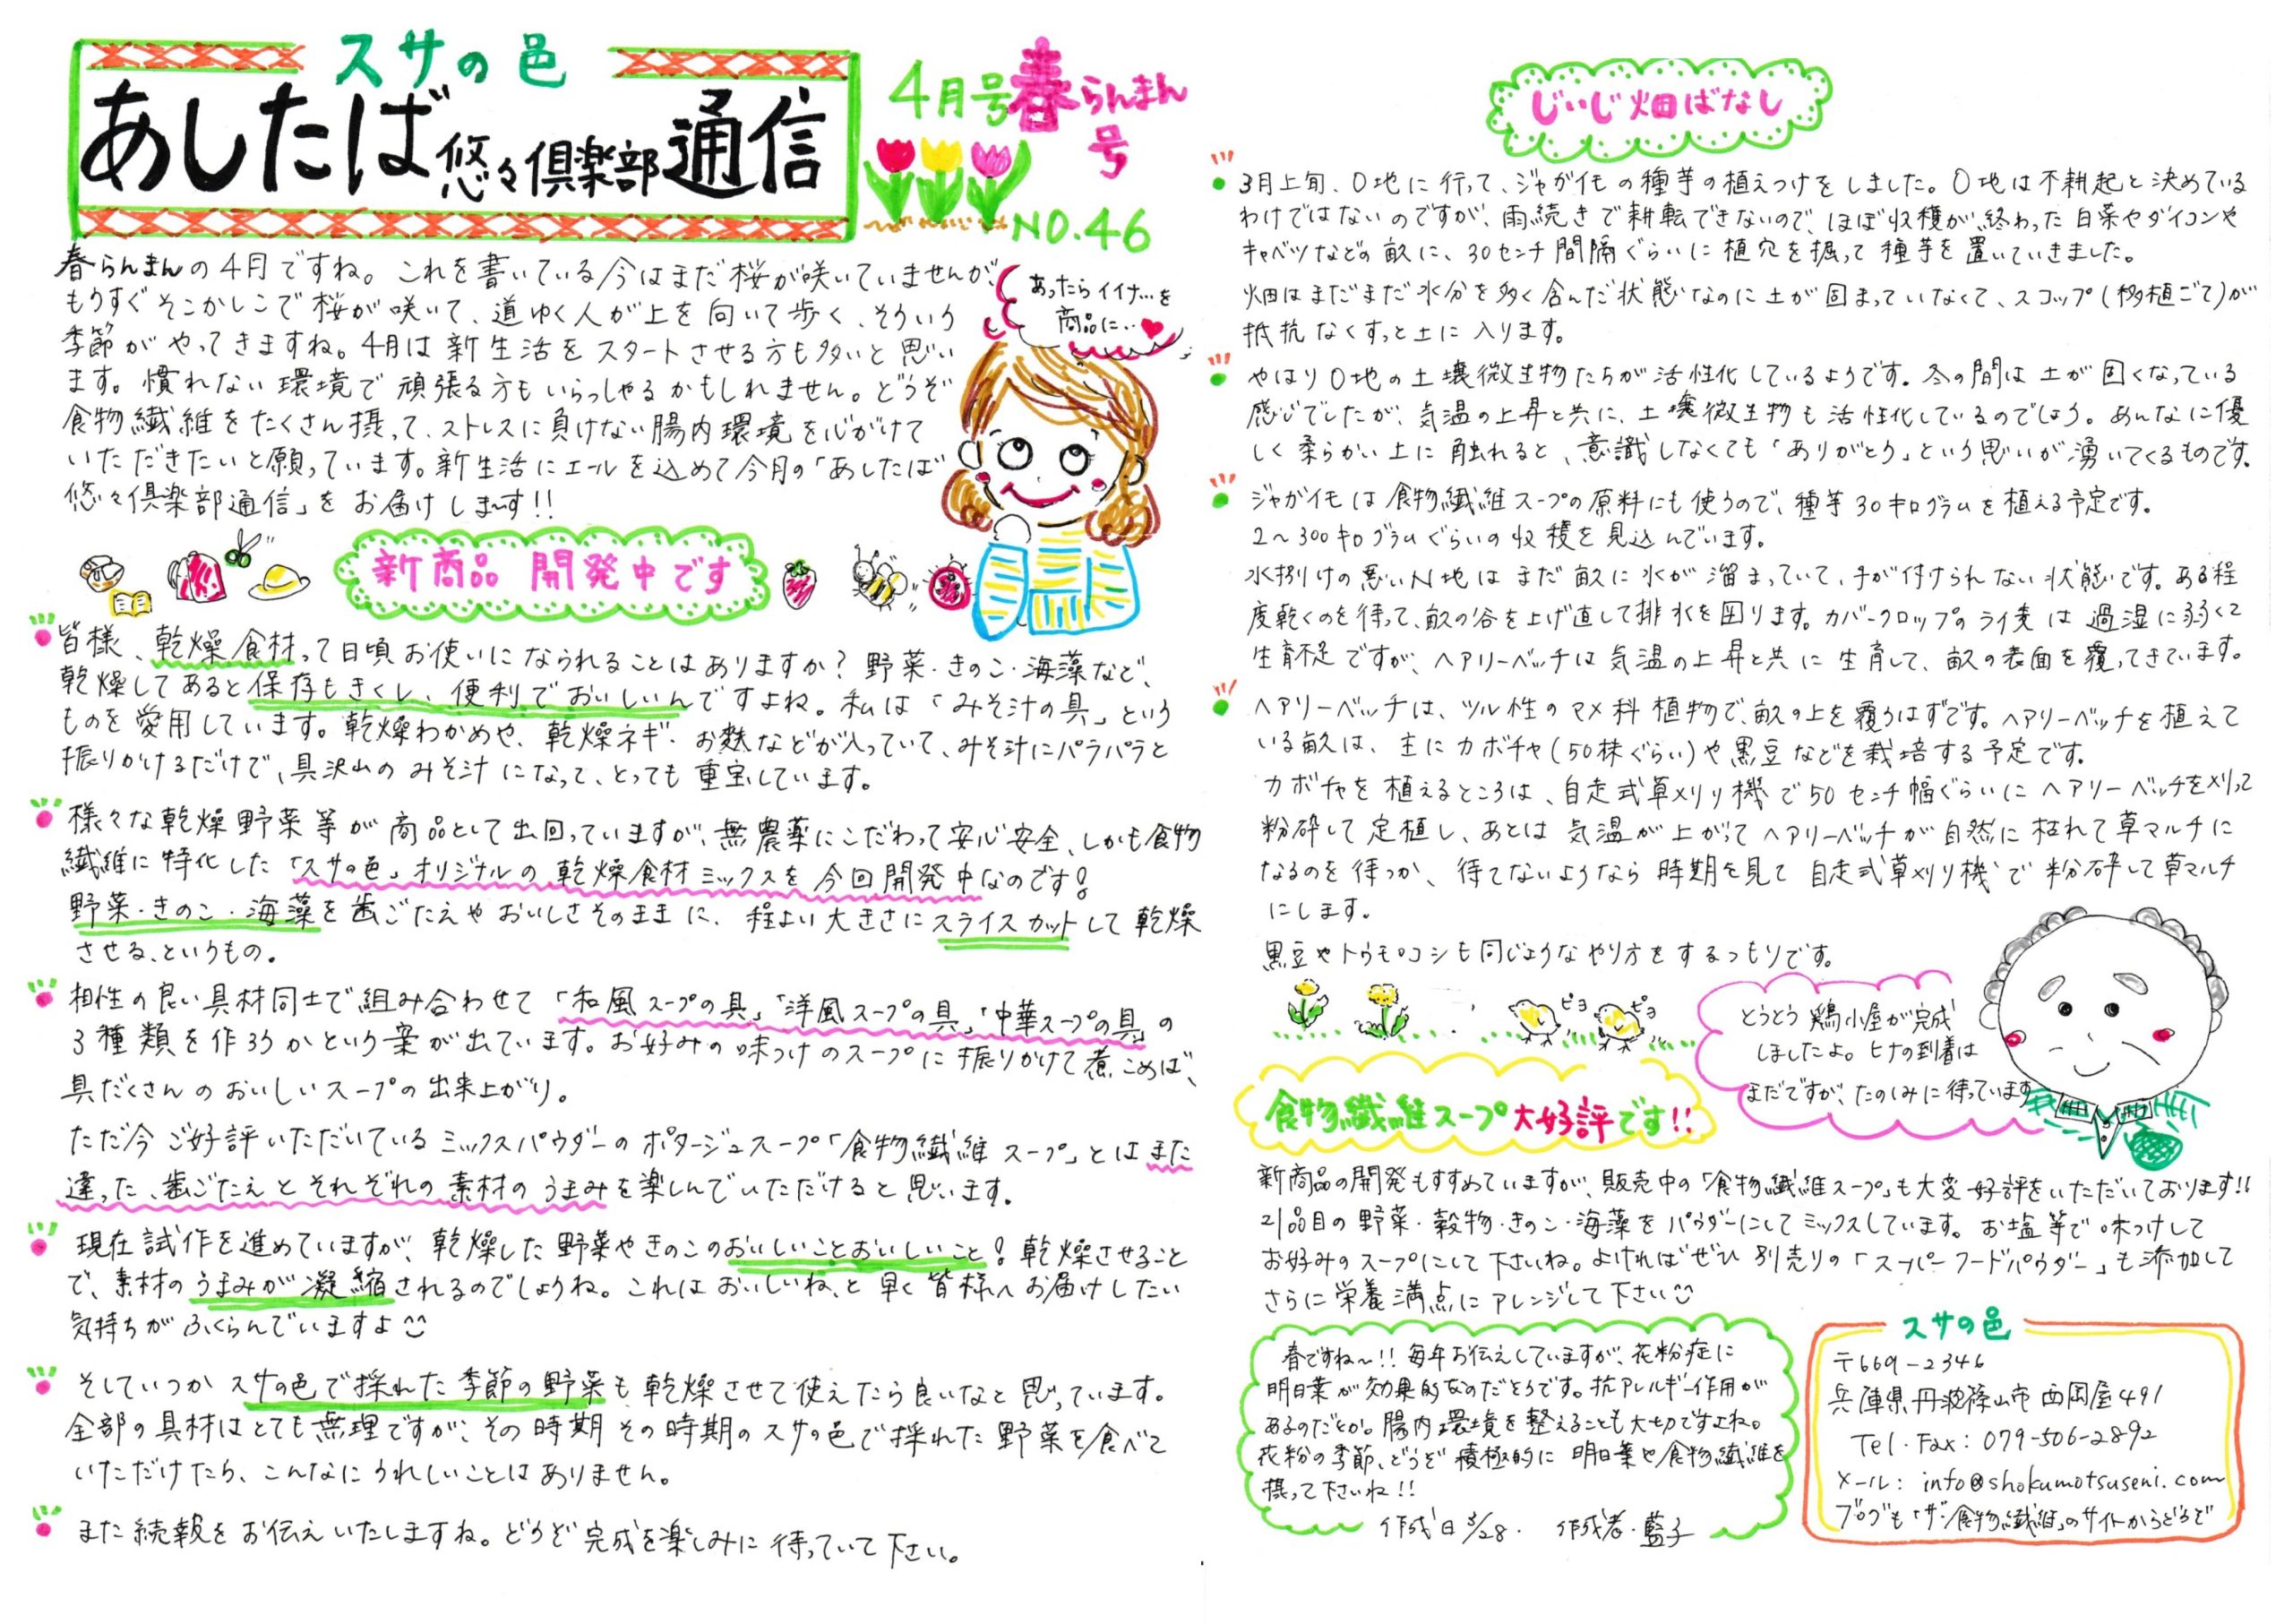 スサの邑
あしたば悠々倶楽部通信
4月号春らんまん号
NO.46
春らんまんの4月ですね。これを書いている今はまだ桜が咲いていませんが、
もうすぐそこかしこで桜が咲いて、道ゆく人が上を向いて歩く、そういう
季節がやってきますね。4月は新生活をスタートさせる方も多いと思い
ます。慣れない環境で頑張る方もいらっしゃるかもしれません。どうぞ
食物繊維をたくさん摂って、ストレスに負けない腸内環境を心がけて
いただきたいと願っています。新生活にエールを込めて今月の「あしたば
悠々倶楽部通信」をお届けしま〜す!!
あったらイイナ…を
商品に‥
新商品 開発中です
皆様、乾燥食材って日頃お使いになられることはありますか?野菜・きのこ・海藻など、
乾燥してあると保存もきくし、便利でおいしいんですよね。私は「みそ汁の具」という
ものを愛用しています。乾燥わかめや、乾燥ネギ・お麩などが入っていて、みそ汁にパラパラと
振りかけるだけで、具沢山のみそ汁になって、とっても重宝しています。
様々な乾燥野菜等が商品として出回っていますが、無農薬にこだわって安心安全、しかも食物
繊維に特化した「スサの邑」オリジナルの乾燥食材ミックスを今回開発中なのです!
野菜・きのこ・海藻を歯ごたえやおいしさそのままに、程よい大きさにスライスカットして乾燥
させる、というもの。
相性の良い具材同士で組み合わせて「和風スープの具」「洋風スープの具」「中華スープの具」の
3種類を作ろうかという案が出ています。お好みの味つけのスープに振りかけて煮こめば、
具だくさんのおいしいスープの出来上がり。
ただ今ご好評いただいているミックスパウダーのポタージュスープ「食物繊維スープ」とはまた
違った、歯ごたえとそれぞれの素材のうまみを楽しんでいただけると思います。
現在試作を進めていますが、乾燥した野菜やきのこのおいしいことおいしいこと!乾燥させること
で、素材のうまみが凝縮されるのでしょうね。これはおいしいね、と早く皆様へお届けしたい
気持ちがふくらんでいますよ
そしていつかスサの邑で採れた季節の野菜も乾燥させて使えたら良いなと思っています。
全部の具材はとても無理ですが、その時期その時期のスサの邑で採れた野菜を食べて
いただけたら、こんなにうれしいことはありません。
また続報をお伝えいたしますね。どうぞ完成を楽しみに待っていて下さい。
じいじ畑ばなし
3月上旬、O地に行って、ジャガイモの種芋の植えつけをしました。O地は不耕起と決めている
わけではないのですが、雨続きで耕転できないので、ほぼ収穫が終わった白菜やダイコンや
キャベツなどの畝に、30センチ間隔ぐらいに植穴を掘って種芋を置いていきました。
畑はまだまだ水分を多く含んだ状態なのに土が固まっていなくて、スコップ(移植ごて)が
抵抗なくすっと土に入ります。
やはりO地の土壌微生物たちが活性化しているようです。冬の間は土が固くなっている
感じでしたが、気温の上昇と共に、土壌微生物も活性化しているのでしょう。あんなに優
しく柔らかい土に触れると、意識しなくても「ありがとう」という思いが湧いてくるものです。
ジャガイモは食物繊維スープの原料にも使うので、種芋30キログラムを植える予定です。
2〜300キログラムぐらいの収穫を見込んでいます。
水捌けの悪いN地はまだ畝に水が溜まっていて、手が付けられない状態です。ある程
度乾くのを待って、畝の谷を上げ直して排水を図ります。カバークロップのライ麦は過湿に弱くて
生育不足ですが、ヘアリーベッチは気温の上昇と共に生育して、畝の表面を覆ってきています。
ヘアリーベッチは、ツル性のマメ科植物で、畝の上を覆うはずです。ヘアリーベッチを植えて
いる畝は、主にカボチャ(50株ぐらい)や黒豆などを栽培する予定です。
カボチャを植えるところは、自走式草刈り機で50センチ幅ぐらいにヘアリーベッチを刈って
粉砕して定植し、あとは気温が上がってヘアリーベッチが自然に枯れて草マルチに
なるのを待つか、待てないようなら時期を見て自走式草刈り機で粉砕して草マルチ
にします。
黒豆やトウモロコシも同じようなやり方をするつもりです。
ピヨ
ピヨ
とうとう鶏小屋が完成
しましたよ。ヒナの到着は
まだですが、たのしみに待っています
食物繊維スープ大好評です!!
新商品の開発もすすめていますが、販売中の「食物繊維スープ」も大変好評をいただいております!!
21品目の野菜・穀物・きのこ・海藻をパウダーにしてミックスしています。お塩等で味つけして
お好みのスープにして下さいね。よければぜひ別売りの「スーパーフードパウダー」も添加して
さらに栄養満点にアレンジして下さい
春ですね〜!!毎年お伝えしていますが、花粉症に
明日葉が効果的なのだそうです。抗アレルギー作用が
あるのだとか。腸内環境を整えることも大切ですよね。
花粉の季節、どうぞ積極的に明日葉や食物繊維を
摂って下さいね!!
作成日3/28. 作成者・藍子
スサの邑
〒669-2346
兵庫県丹波篠山市西岡屋491
Tel・Fax:079-506-2892
メール:info@shokumotsuseni.com
ブログも「ザ・食物繊維」のサイトからどうぞ